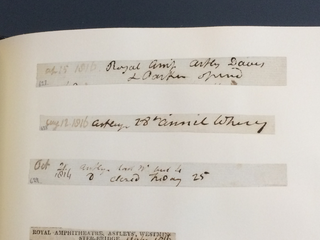 1816 Royal Amp. Astley Davis
& Parker opend
1816 Astleys 28th annil Wherry
Oct 1816 Astley last Nt but 4
Closed Friday 25
ROYAL AMPHITHEATRE, ASTLEYS, WESTMIN
STER-BRIDGE.